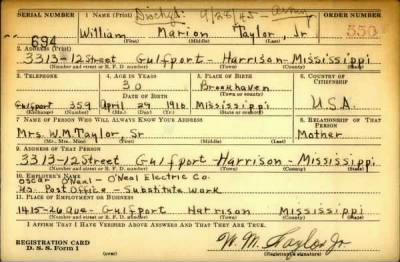 SERIAL NUMBER 1. NAME (Print) Dischgd. 9/28/45 - Army ORDER NUMBER
694 William Marion Taylor, Jr 550
(First) (Middle) (Last)
2. ADDRESS (Print)
3313-12 Street Gulfport - Harrison - Mississippi
(Number and street or R. F. D. number) (Town) (County) (State)
3. TELEPHONE 4. AGE IN YEARS 5. PLACE OF BIRTH 6. COUNTRY OF CITIZENSHIP
30 Brookhaven
DATE OF BIRTH (Town or county)
Gulfport 359 April 29 1910 Mississippi U.S.A.
(Exchange) (Number) (Mo.) (Day) (Yr.) (State or country)
7. NAME OF PERSON WHO WILL ALWAYS KNOW YOUR ADDRESS 8. RELATIONSHIP OF THAT PERSON
Mrs. W.M. Taylor, Sr Mother
(Mr., Mrs., Miss) (First) (Middle) (Last)
9. ADDRESS OF THAT PERSON
3313-12 Street Gulfport - Harrison - Mississippi
(Number and street or R. F. D. number) (Town) (County) (State)
10. EMPLOYER'S NAME
Oscar O'Neal - O'Neal Electric Co.
U.S. Post Office - Substitute Work
11. PLACE OF EMPLOYMENT OR BUSINESS
1415-26 Ave - Gulfport Harrison Mississippi
(Number and street or R. F. D. number) (Town) (County) (State)
I AFFIRM THAT I HAVE VERIFIED ABOVE ANSWERS AND THAT THEY ARE TRUE.
REGISTRATION CARD
D. S. S. Form 1 W. M. Taylor Jr
(Registrant's signature)